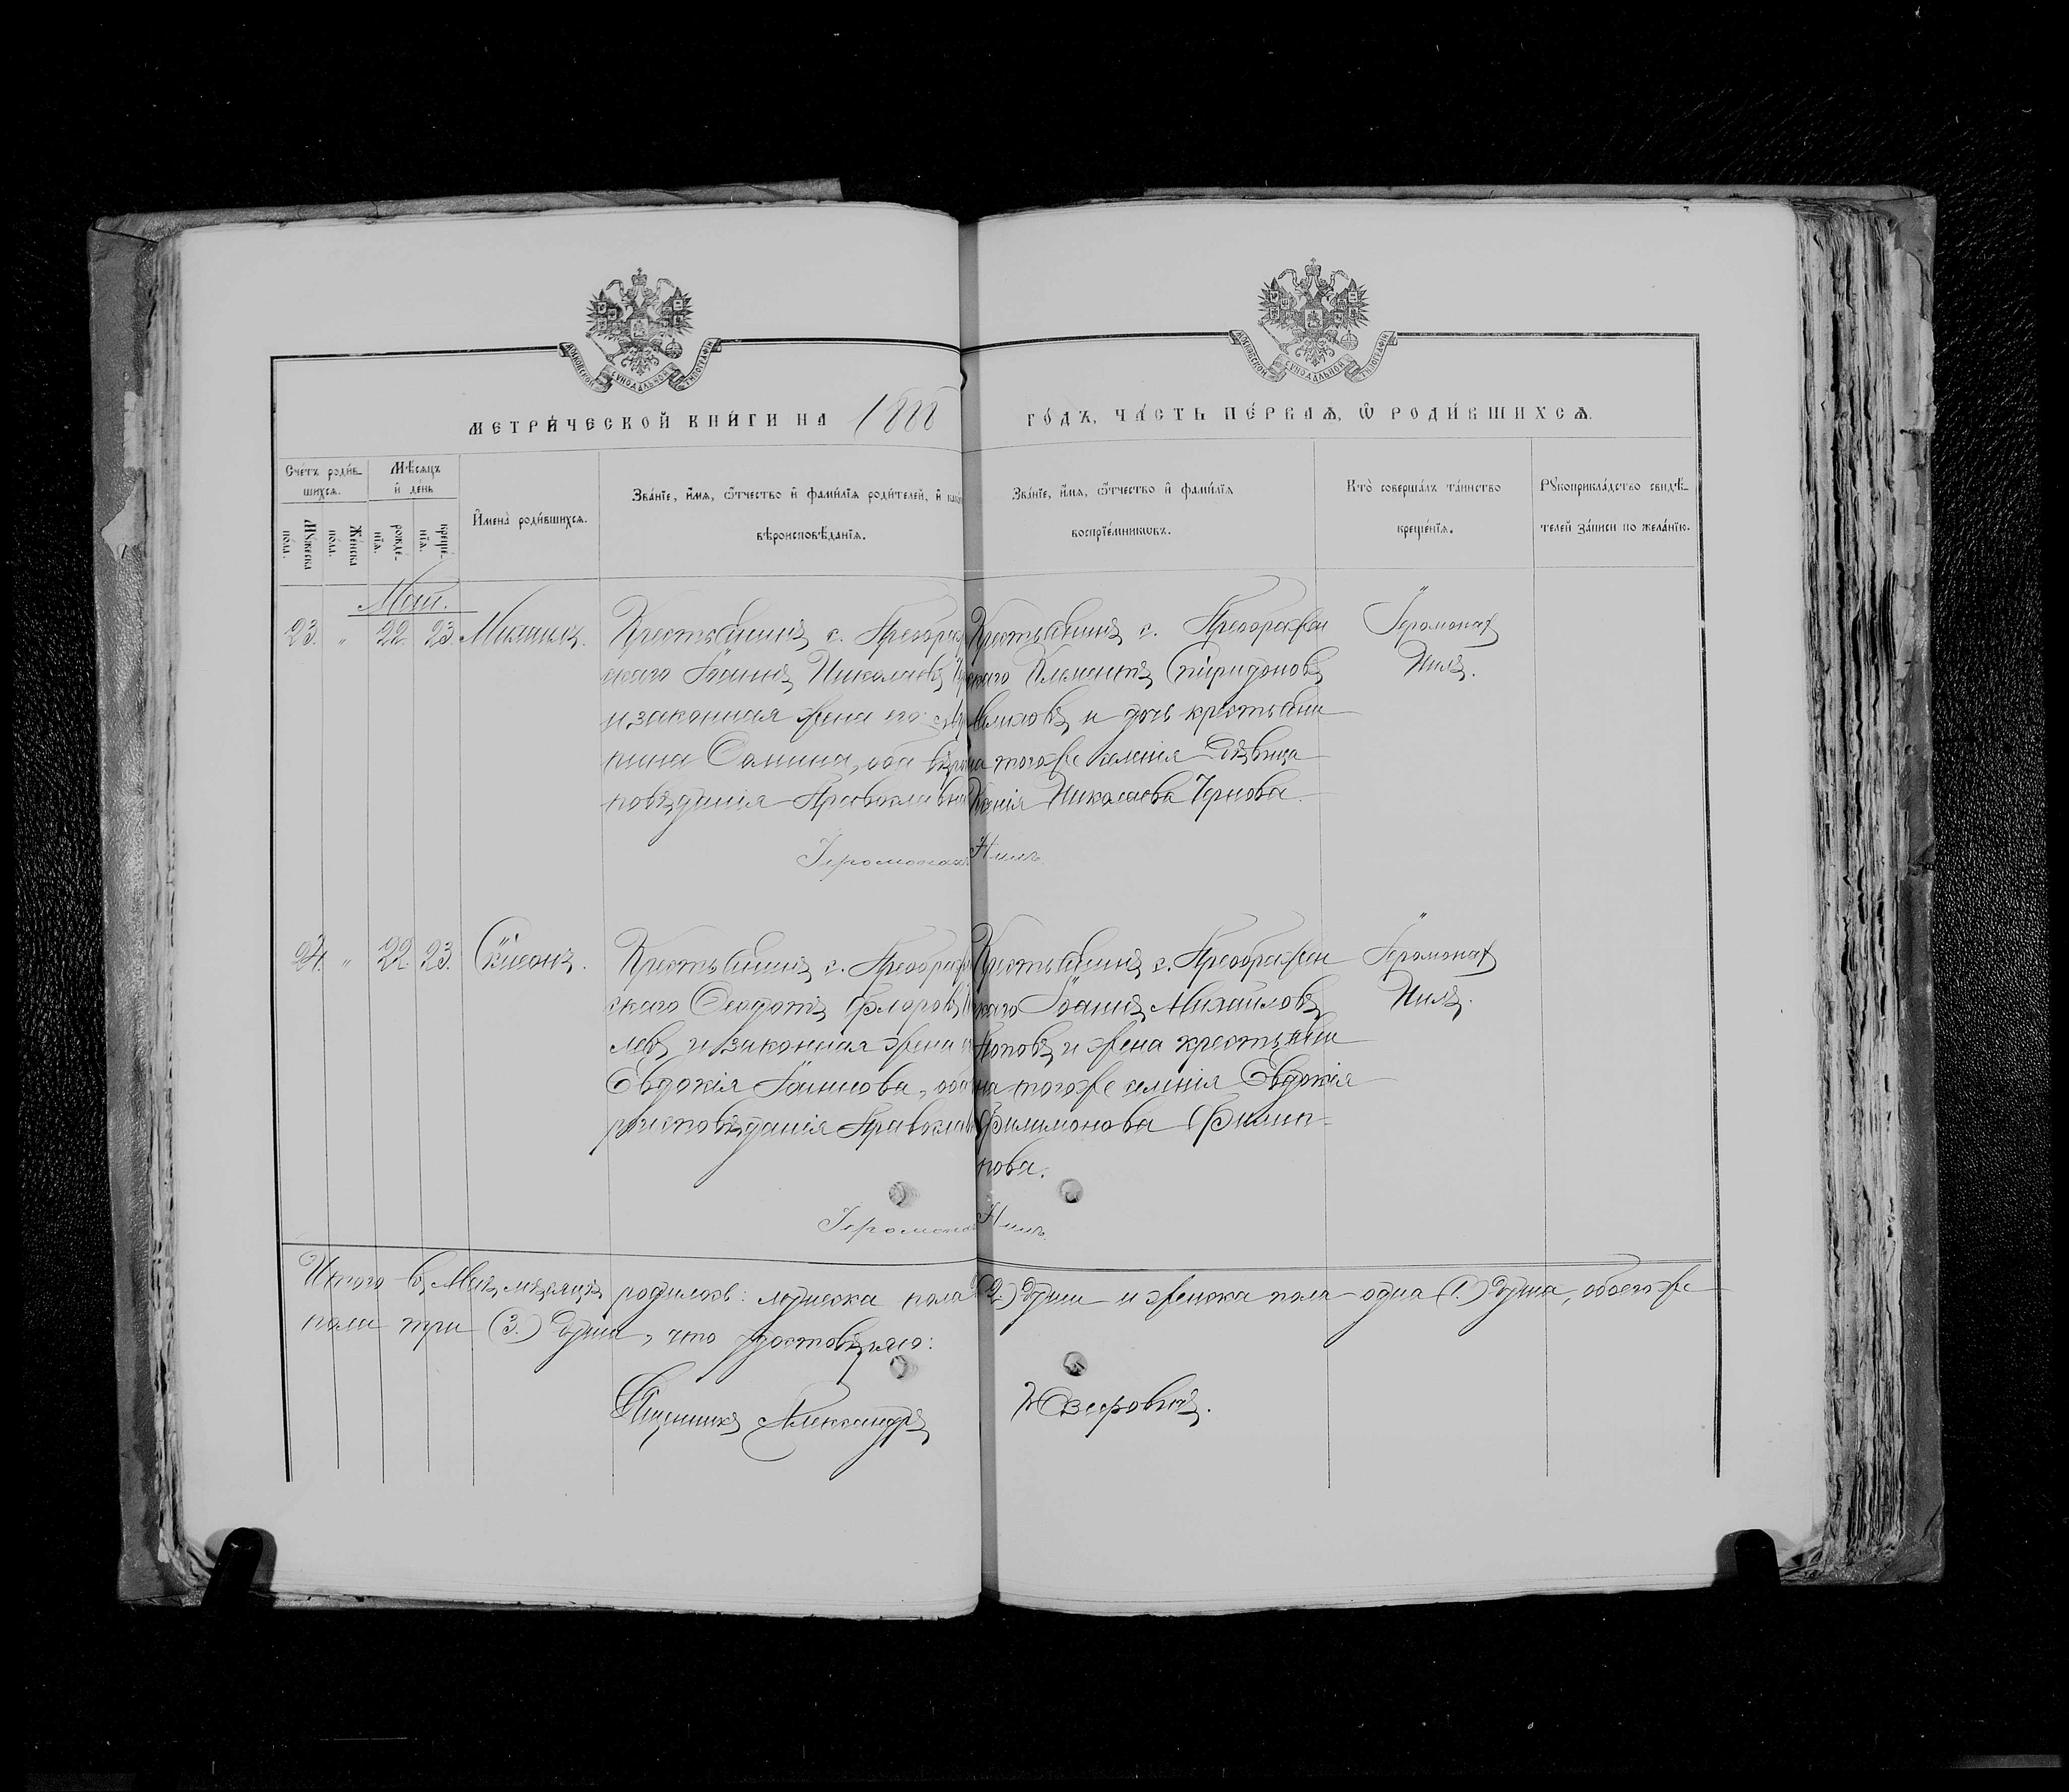 МОСКОВСКОЙ СѴНОДАЛЬНОЙ ТИПОГРАФІИ
МОСКОВСКОЙ СѴНОДАЛЬНОЙ ТИПОГРАФІИ
МЕТРИ́ЧЕСКОЙ КНИ́ГИ НА 1888
ГО́ДЪ, ЧА́СТЬ ПЕ́РВАѦ, Ѡ҆ РОДИ́ВШИХСѦ.
Сче́тъ роди́в-
шихсѧ.
Мѣ́сѧцъ
и҆ де́нь
Мꙋ́жеска
по́ла.
Же́нска
по́ла.
рожде́-
нїѧ.
креще́-
нїѧ.
И҆мена̀ роди́вшихсѧ.
Зва́нїе, и҆́мѧ, ѻ҆́тчество и҆ фами́лїѧ роди́телей, и҆
вѣроисповѣ́данїѧ.
Зва́нїе, и҆́мѧ, ѻ҆́тчество и҆ фами́лїѧ
воспрїе́мникѡвъ.
Кто̀ соверша́лъ та́инство
креще́нїѧ.
Рꙋкоприкла́дство свидѣ́-
телей за́писи по жела́нїю.
Май.
23. " 22. 23.
Крестьянинъ с. Преображ
скаго Іоаннъ Николаевъ
и законная жена его
нина Сонина, оба вѣро
повѣданія Православна
Крестьянинъ с. Преображен
скаго Климентъ Спиридоновъ
и дочь крестьяни
на тогоже селенія Дѣвица
Ксенія Николаева Чернова.
Іеромонах
Нилъ.
Іеромонахъ Нилъ.
24. " 22. 23.
Крестьянинъ с. Преображ
скаго Ѳеодотъ Флоровъ
левъ и законная жена е
Евдокія Іоаннова, оба
роисповѣданія Православ
Крестьянинъ с. Преображен
скаго Іоаннъ Михаиловъ
Поповъ и жена крестьяни
на тогоже селенія Евдокія
Филимонова Филип-
пова.
Іеромонах
Нилъ.
Іеромонах Нилъ.
Итого въ Маѣ мѣсяцѣ родилось: мужеска пола (2.) души и женска пола одна (1.) душа, обоего же
пола три (3.) души, что удостовѣряю:
Священникъ Александръ